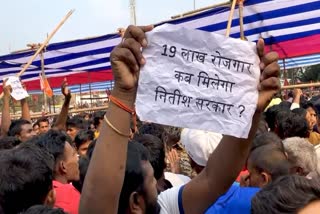 19 लाख रोजगार
कब मिलेगा
नितीश सरकार ?